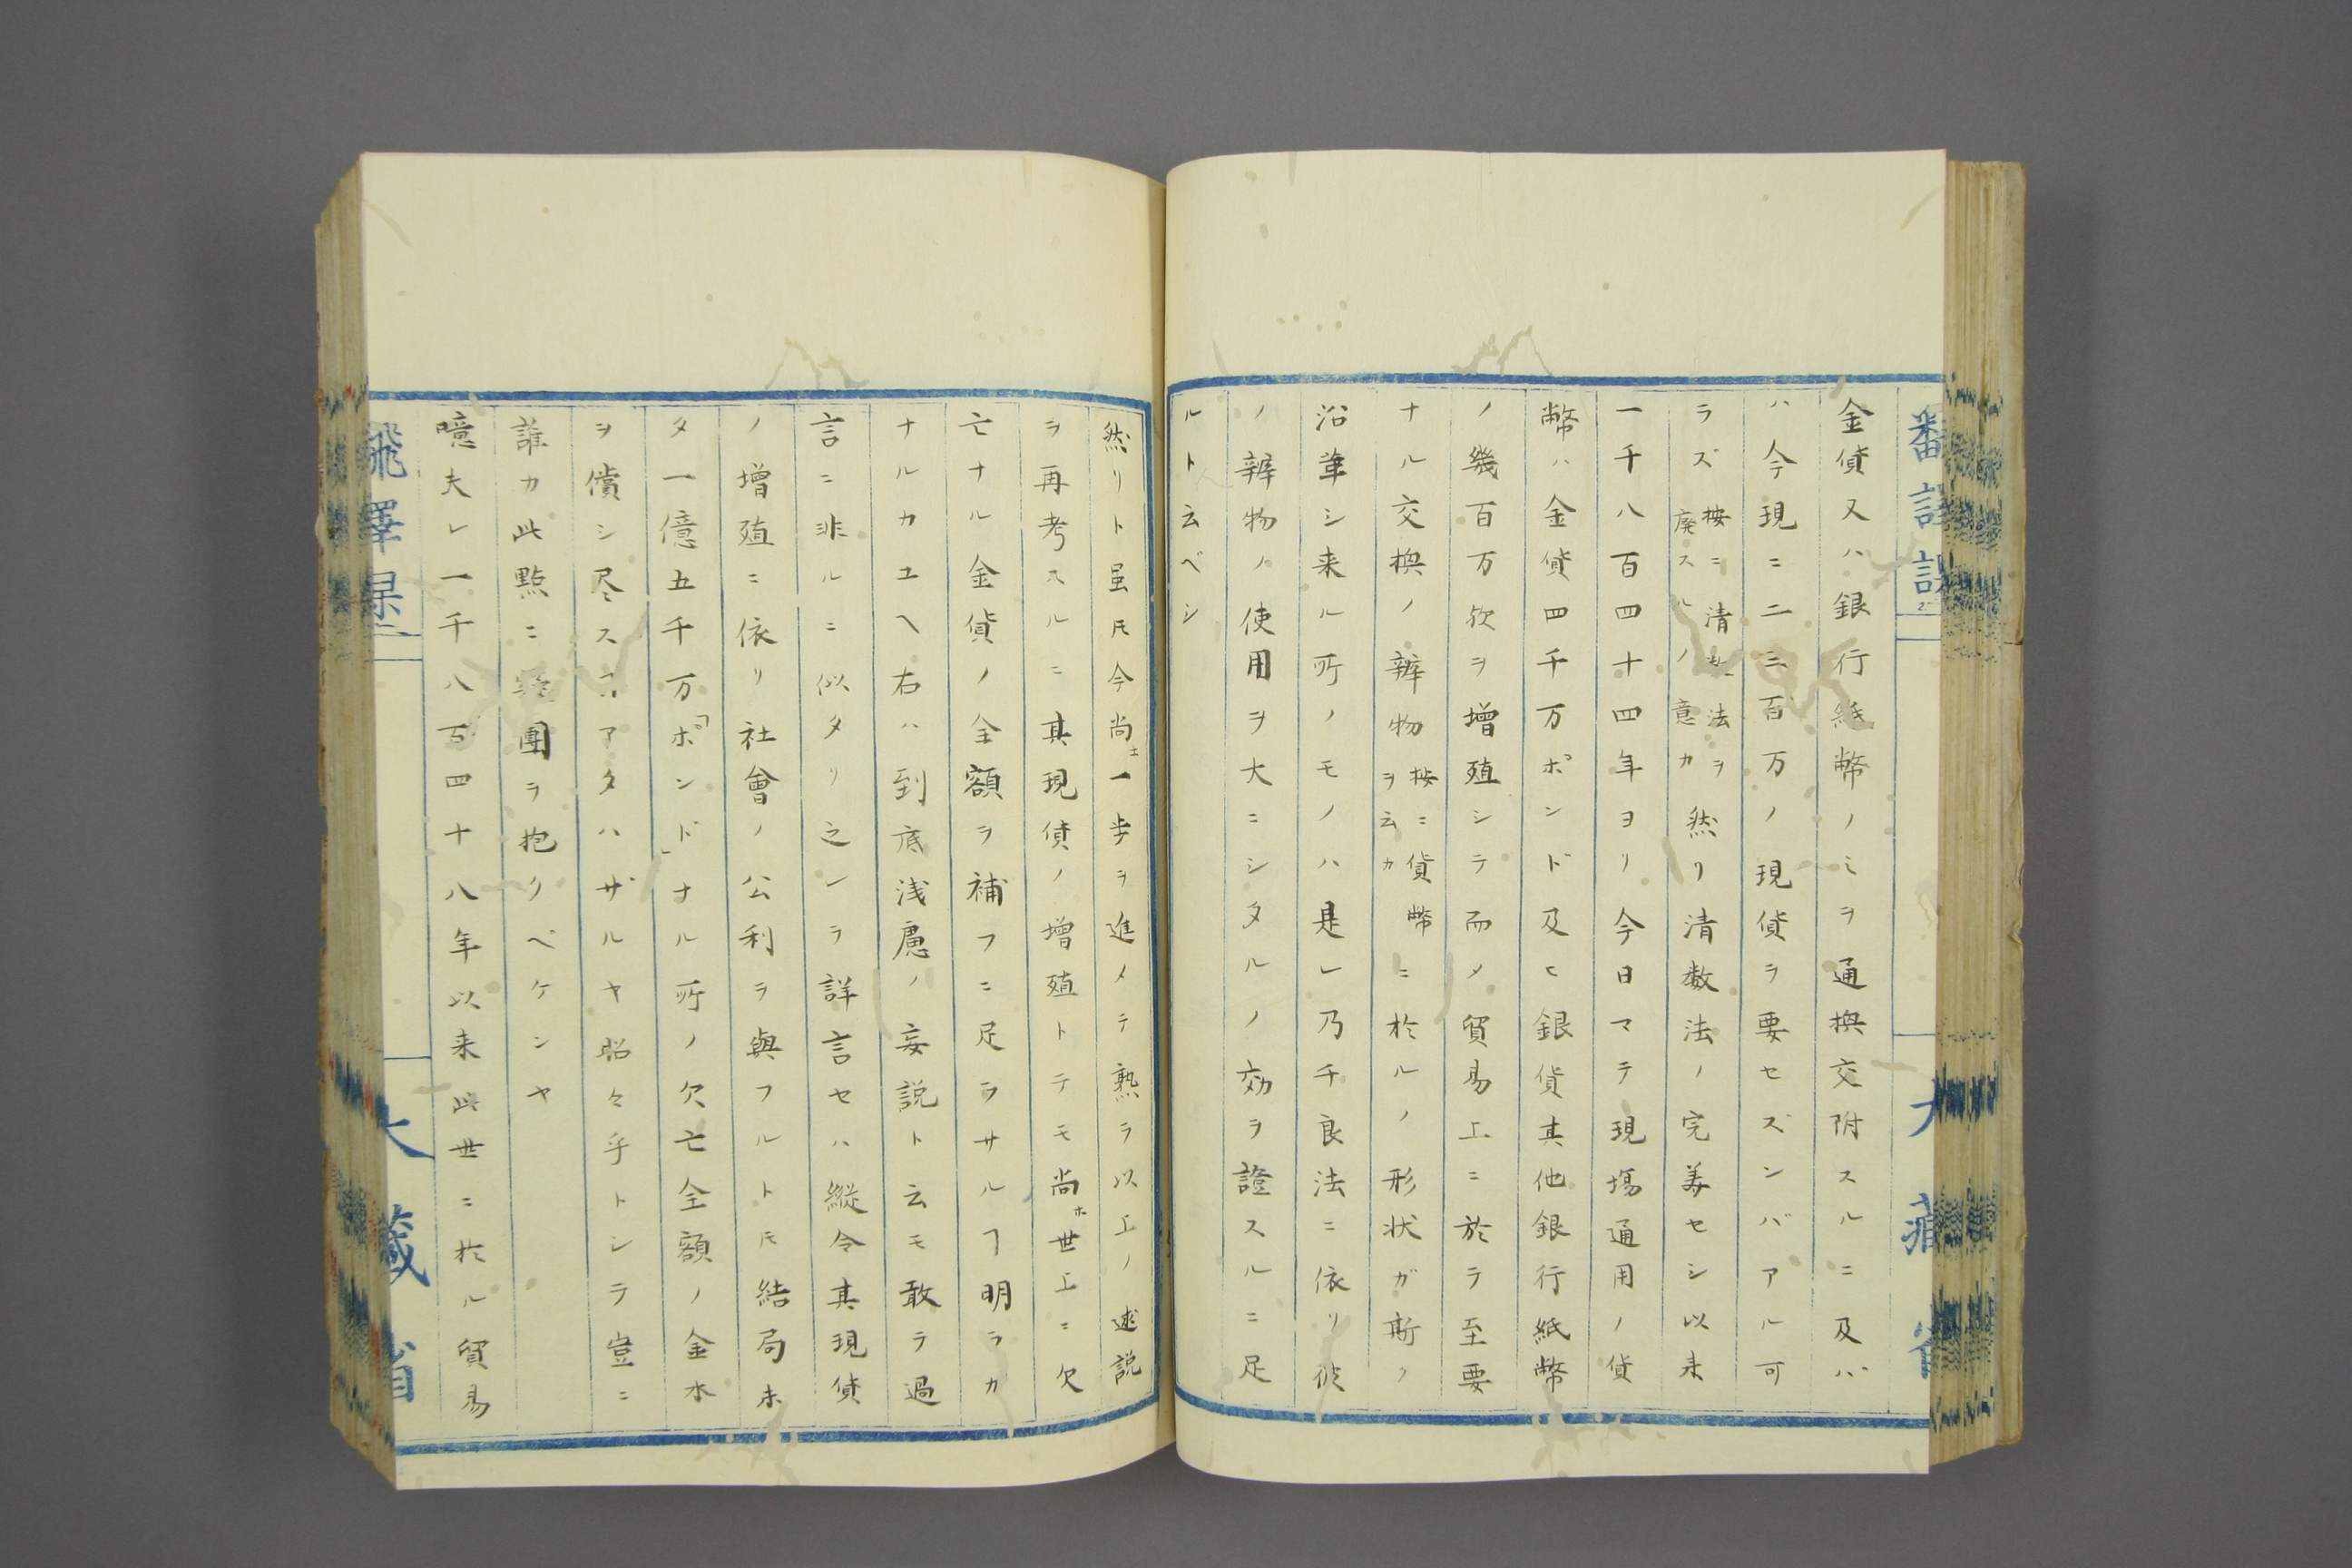 金貨又ハ銀行紙幣ノミヲ通換交附スルニ及バ
ハ今現ニ二三百万ノ現貨ヲ要セズンバアル可
ラズ按ニ清算法ヲ廃スルノ意カ然リ清数法ノ完美セシ以来
一千八百四十四年ヨリ今日マテ現場通用ノ貨
幣ハ金貨四千万ポンド及ヒ銀貨其他銀行紙幣
ノ幾百万欤ヲ増殖シテ而メ貿易上ニ於テ至要
ナル交換ノ辨物按ニ貨幣ヲ云カニ於ルノ形状ガ斯ク
沿革シ来ル所ノモノハ是レ乃チ良法ニ依リ彼
ノ辨物ノ使用ヲ大ニシタルノ効ヲ證スルニ足
ルト云ベシ
然リト虽𪜈今尚ヱ一歩ヲ進メテ熟ラ以上ノ述説
ヲ再考スルニ其現債ノ増殖トテモ尚ホ世上ニ欠
亡ナル金貨ノ全額ヲ補フニ足ラサルヿ明ラカ
ナルカユヘ右ハ到底浅慮ノ妄説ト云モ敢テ過
言ニ非ルニ似タリ之レヲ詳言セハ縦令其現貨
ノ増殖ニ依リ社會ノ公利ヲ與フルト𪜈結局未
タ一億五千万「ポンド」ナル所ノ欠亡全額ノ金本
ヲ償シ尽スヿアタハザルヤ昭々乎トシテ豈ニ
誰カ此點ニ疑團ヲ抱クベケンヤ
噫夫レ一千八百四十八年以来此世ニ於ル貿易
大藏省